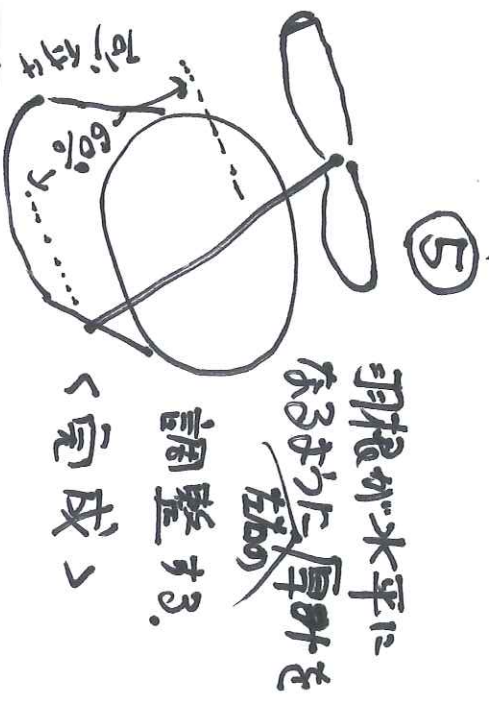 ⑤
羽根が水平に
なるように厚みを
左右の
調整する.
<完成>
60°